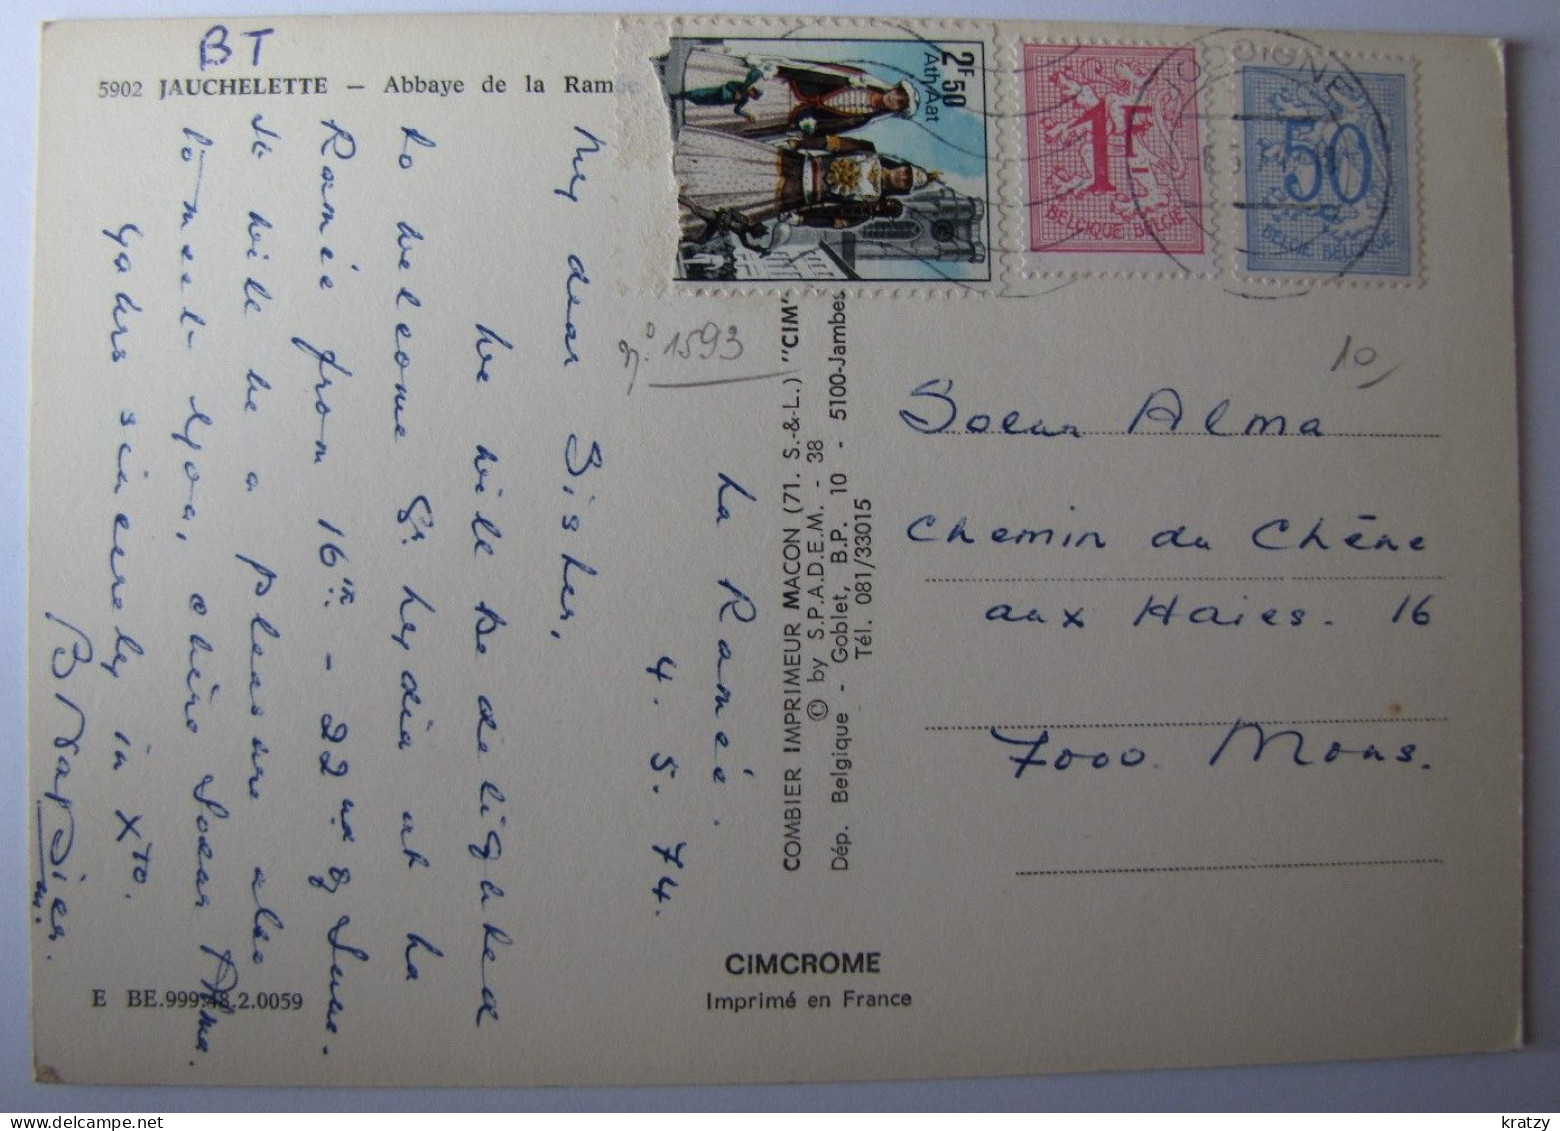 BT
5902 JAUCHELETTE — Abbaye de la Ramée
La Ramée.
4. 5. 74.
My dear Sister,
We will be delighted
to welcome Sr Lydia at La
Ramée from 16th - 22nd of June.
It will be a pleasure also
to meet you, chère Soeur Alma.
Yours sincerely in Xto.
E BE.999.48.2.0059
n° 1593
COMBIER IMPRIMEUR MACON (71. S.-&-L.) "CIM"
© by S.P.A.D.E.M. - 38
Dép. Belgique - Goblet, B.P. 10 - 5100-Jambes
Tél. 081/33015
CIMCROME
Imprimé en France
2F50
Ath Aat
1F
BELGIQUE BELGIË
50
BELGIË BELGIQUE
10
Soeur Alma
Chemin du Chêne
aux Haies. 16
7000. Mons.
kratzy